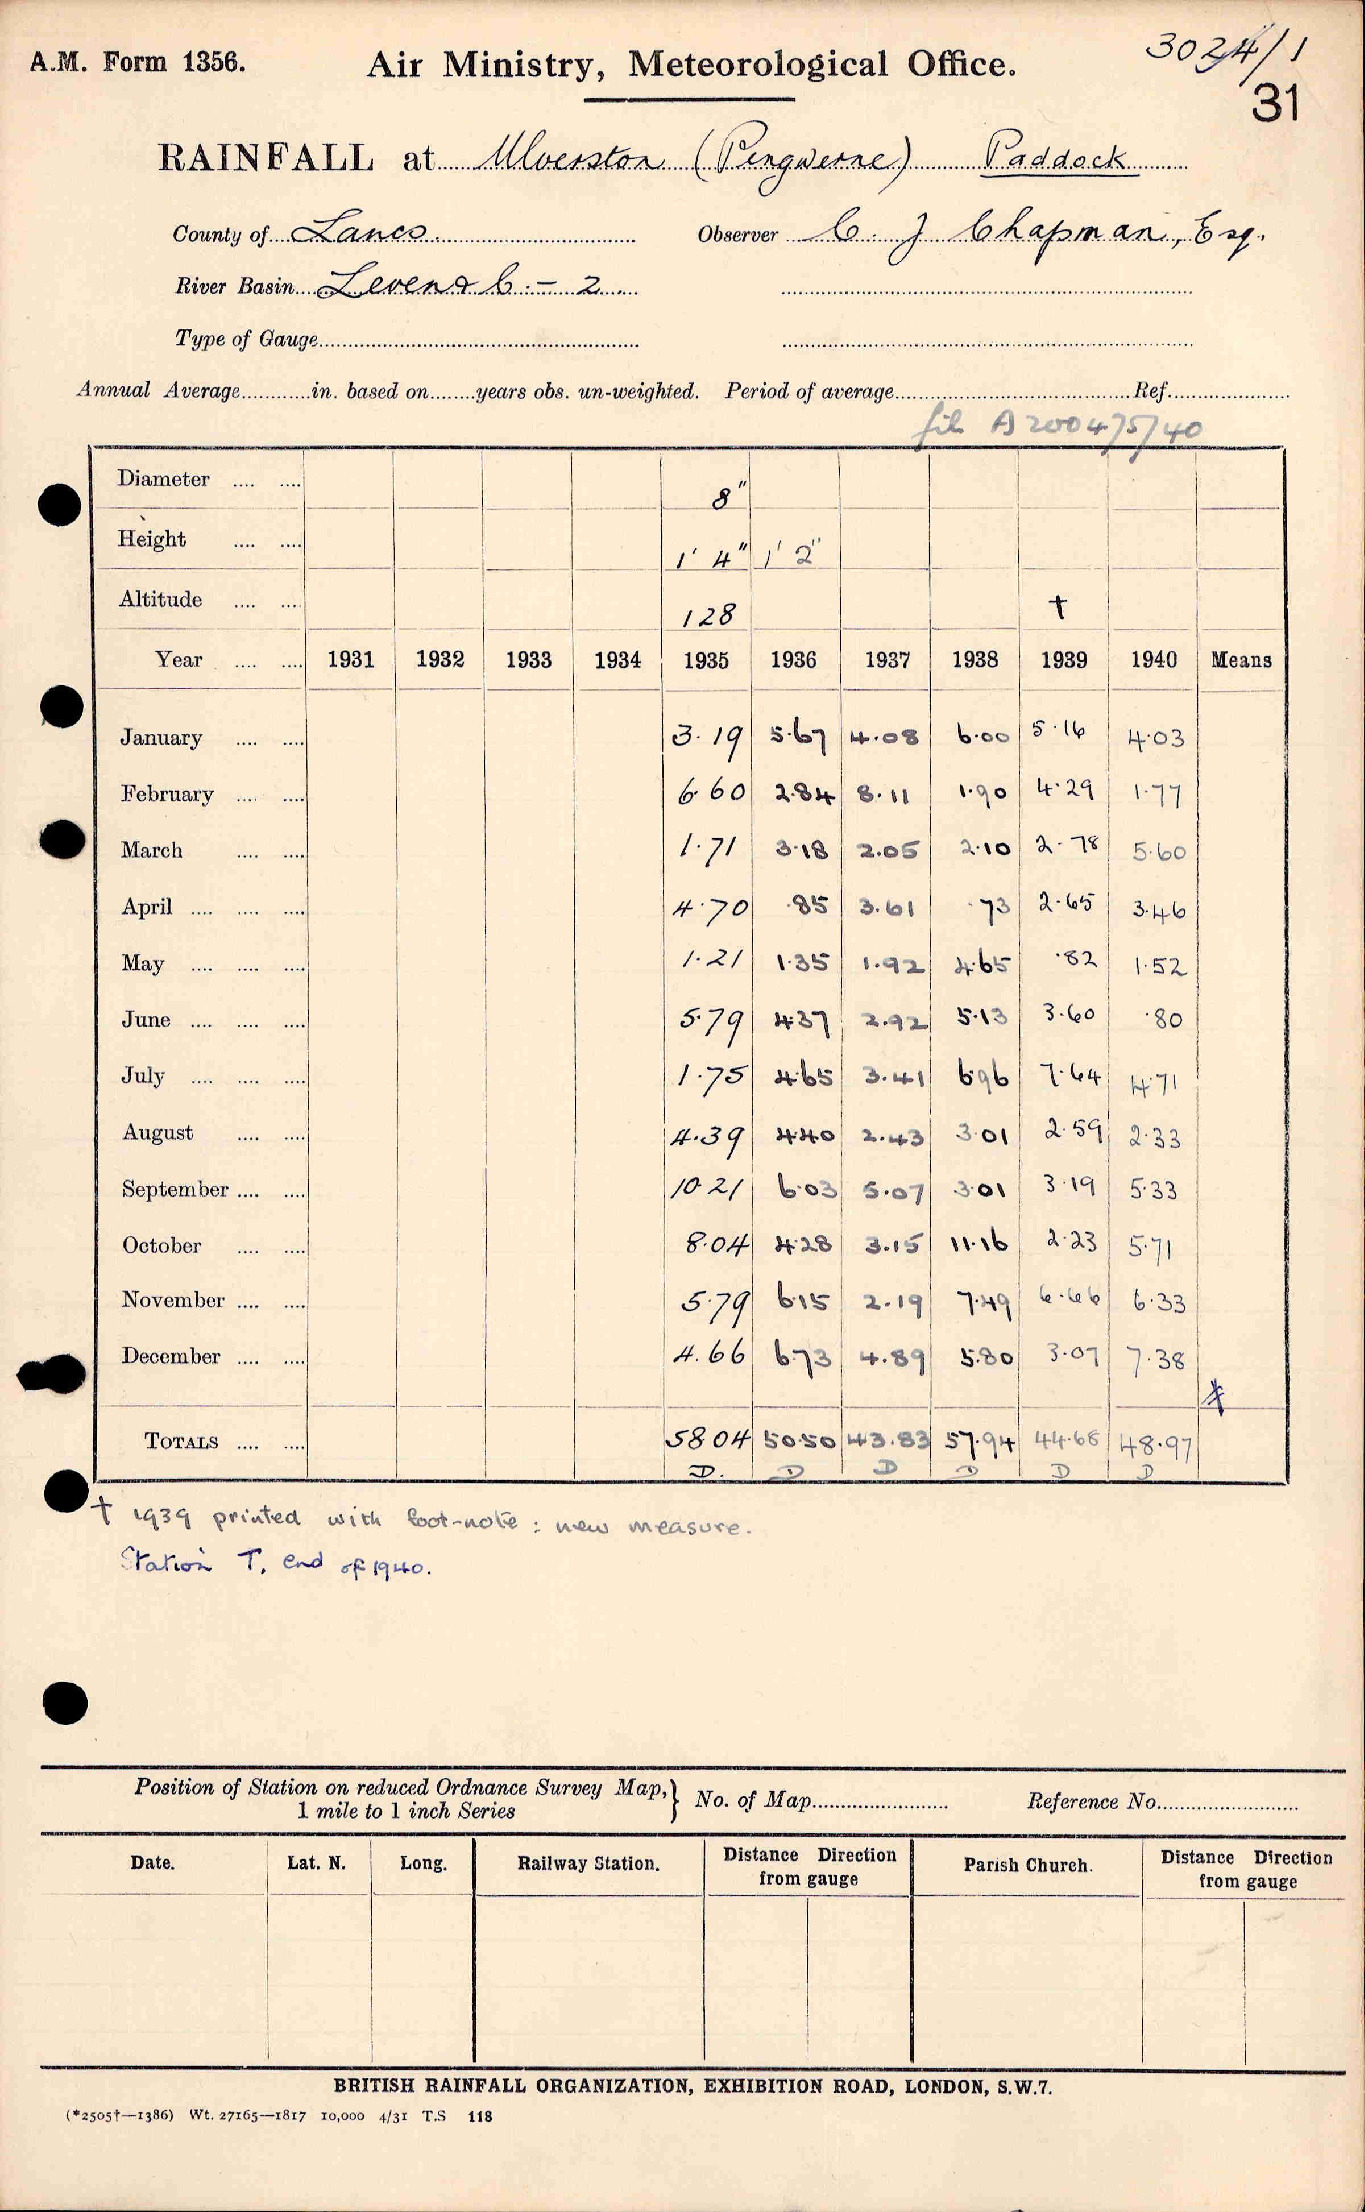 A.M. Form 1356. Air Ministry, Meteorological Office. 3024/1
31
RAINFALL at Ulverston (Pengwerne) Paddock
County of Lancs. Observer C. J Chapman, Esq.
River Basin Leven & C. – 2
Type of Gauge
Annual Average in. based on years obs. un-weighted. Period of average Ref.
A200475/40
Diameter 8"
Height 1' 4" 1' 2"
Altitude 128 †
Year 1931 1932 1933 1934 1935 1936 1937 1938 1939 1940 Means
January 3.19 5.67 4.08 6.00 5.16 4.03
February 6.60 2.84 8.11 1.90 4.29 1.77
March 1.71 3.18 2.05 2.10 2.78 5.60
April 4.70 .85 3.61 .73 2.65 3.46
May 1.21 1.35 1.92 4.65 .82 1.52
June 5.79 4.37 2.92 5.13 3.60 .80
July 1.75 4.65 3.41 6.96 7.64 4.71
August 4.39 4.40 2.43 3.01 2.59 2.33
September 10.21 6.03 5.07 3.01 3.19 5.33
October 8.04 4.28 3.15 11.16 2.23 5.71
November 5.79 6.15 2.19 7.49 6.66 6.33
December 4.66 6.73 4.89 5.80 3.07 7.38
TOTALS 58.04 50.50 43.83 57.94 44.68 48.97
D. D D D D D
† 1939 printed with foot-note: new measure.
Station T. end of 1940.
Position of Station on reduced Ordnance Survey Map, No. of Map Reference No.
1 mile to 1 inch Series
Date. Lat. N. Long. Railway Station. Distance Direction from gauge Parish Church. Distance Direction from gauge
BRITISH RAINFALL ORGANIZATION, EXHIBITION ROAD, LONDON, S.W.7.
(*2505†—1386) Wt. 27165—1817 10,000 4/31 T.S 118